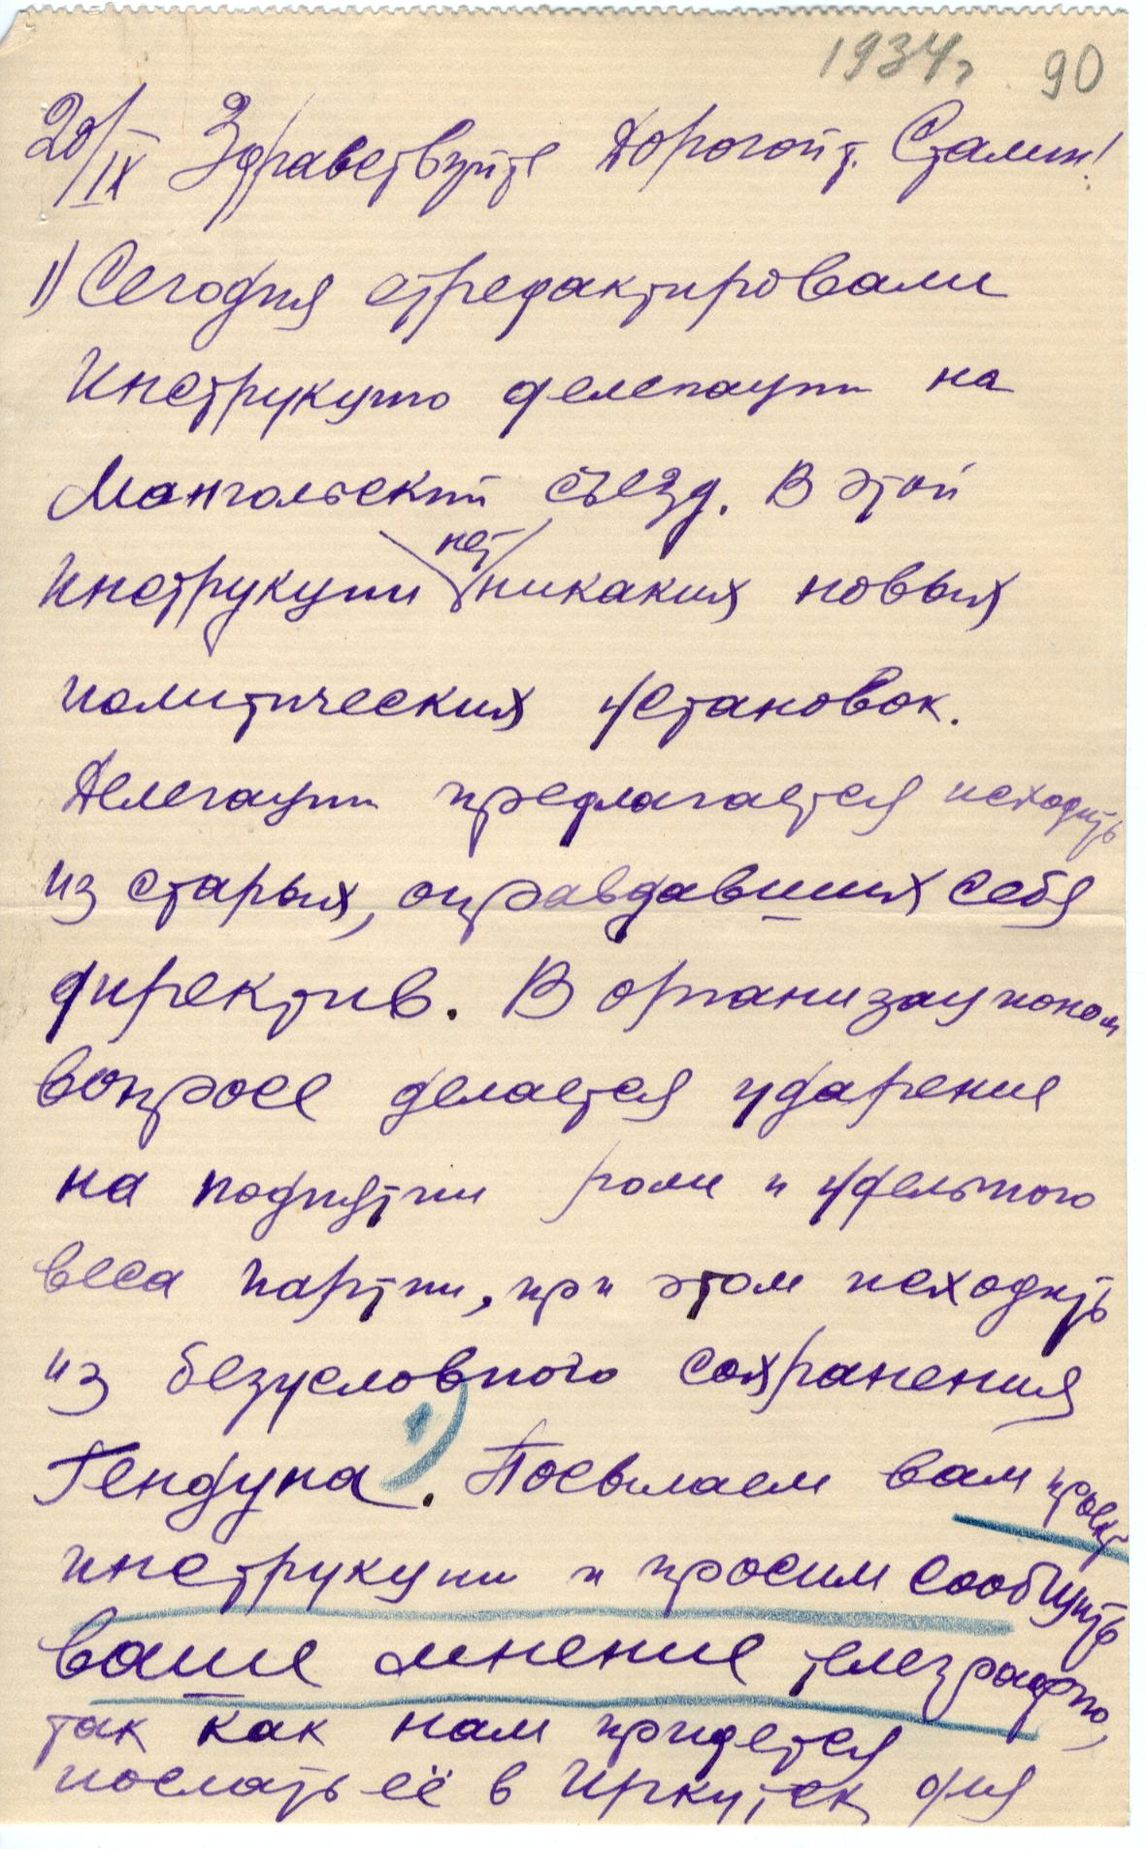 1934г 90
20/IX Здравствуйте Дорогой т. Сталин!
1) Сегодня отредактировали
Инструкцию делегации на
Монгольский съезд. В этой
нет
Инструкции никаких новых
политических установок.
Делегации предлагается исходить
из старых, оправдавших себя
директив. В организационом
вопросе делается ударения
на поднятии роли и удельного
веса партии, при этом исходить
из безусловного сохранения
Гендуна. Посылаем вам проект
инструкции и просим сообщить
ваше мнение телеграфно,
так как нам придется
послать её в Иркутск для